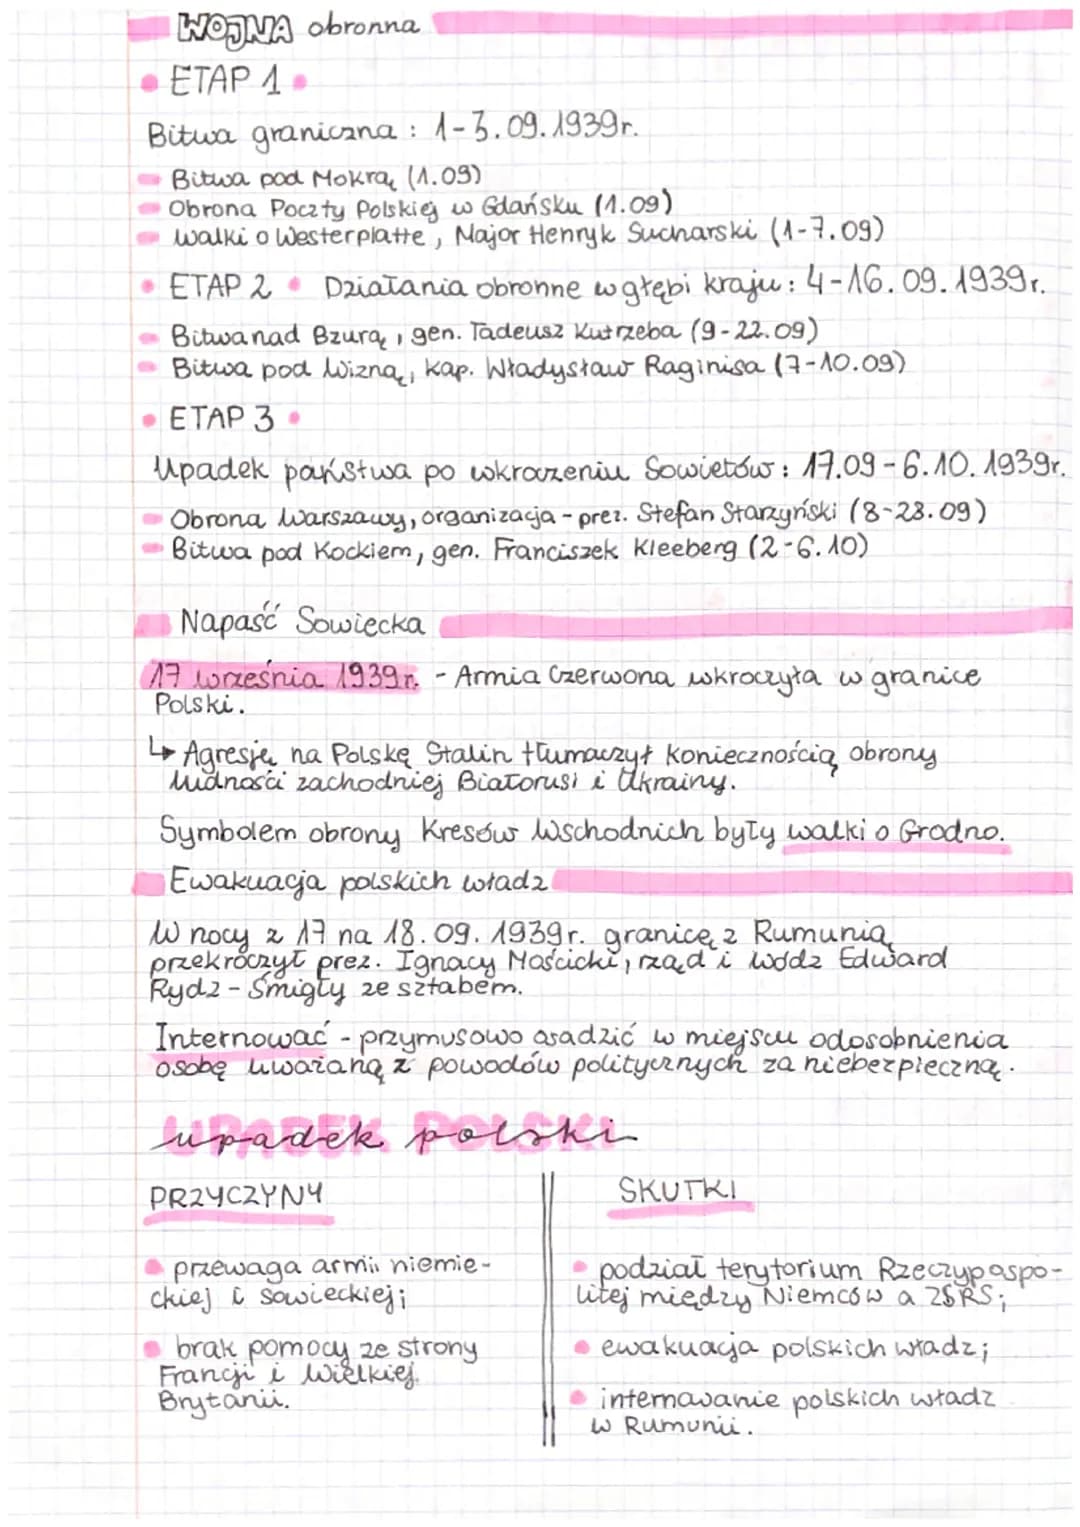 WOJNA obronna
• ETAP 1 •
Bitwa graniczna : 1-3.09.1939r.
Bitwa pod Mokrą (1.09)
Obrona Poczty Polskiej w Gdańsku (1.09)
Walki o Westerplatte, Major Henryk Sucharski (1-7.09)
• ETAP 2 • Działania obronne w głębi kraju: 4-16.09.1939r.
Bitwa nad Bzurą, gen. Tadeusz Kutrzeba (9-22.09)
Bitwa pod Wizną, kap. Władysław Raginisa (7-10.09)
• ETAP 3 •
Upadek państwa po wkroczeniu Sowietów: 17.09-6.10.1939r.
Obrona Warszawy, organizacja - prez. Stefan Starzyński (8-28.09)
Bitwa pod Kockiem, gen. Franciszek Kleeberg (2-6.10)
Napaść Sowiecka
17 września 1939r. - Armia Czerwona wkroczyła w granice
Polski.
↳ Agresję na Polskę Stalin tłumaczył koniecznością obrony
ludności zachodniej Białorusi i Ukrainy.
Symbolem obrony Kresów Wschodnich były walki o Grodno.
Ewakuacja polskich władz
W nocy z 17 na 18.09.1939r. granicę z Rumunią
przekroczył prez. Ignacy Mościcki, rząd i wódz Edward
Rydz-Śmigły ze sztabem.
Internować - przymusowo osadzić w miejscu odosobnienia
osobę uważaną z powodów politycznych za niebezpieczną.
upadek polski
PRZYCZYNY
• przewaga armii niemie-
ckiej i sowieckiej;
• brak pomocy ze strony
Francji i Wielkiej
Brytanii.
SKUTKI
• podział terytorium Rzeczypospo-
litej między Niemców a ZSRS;
• ewakuacja polskich władz;
• internowanie polskich władz
w Rumunii.